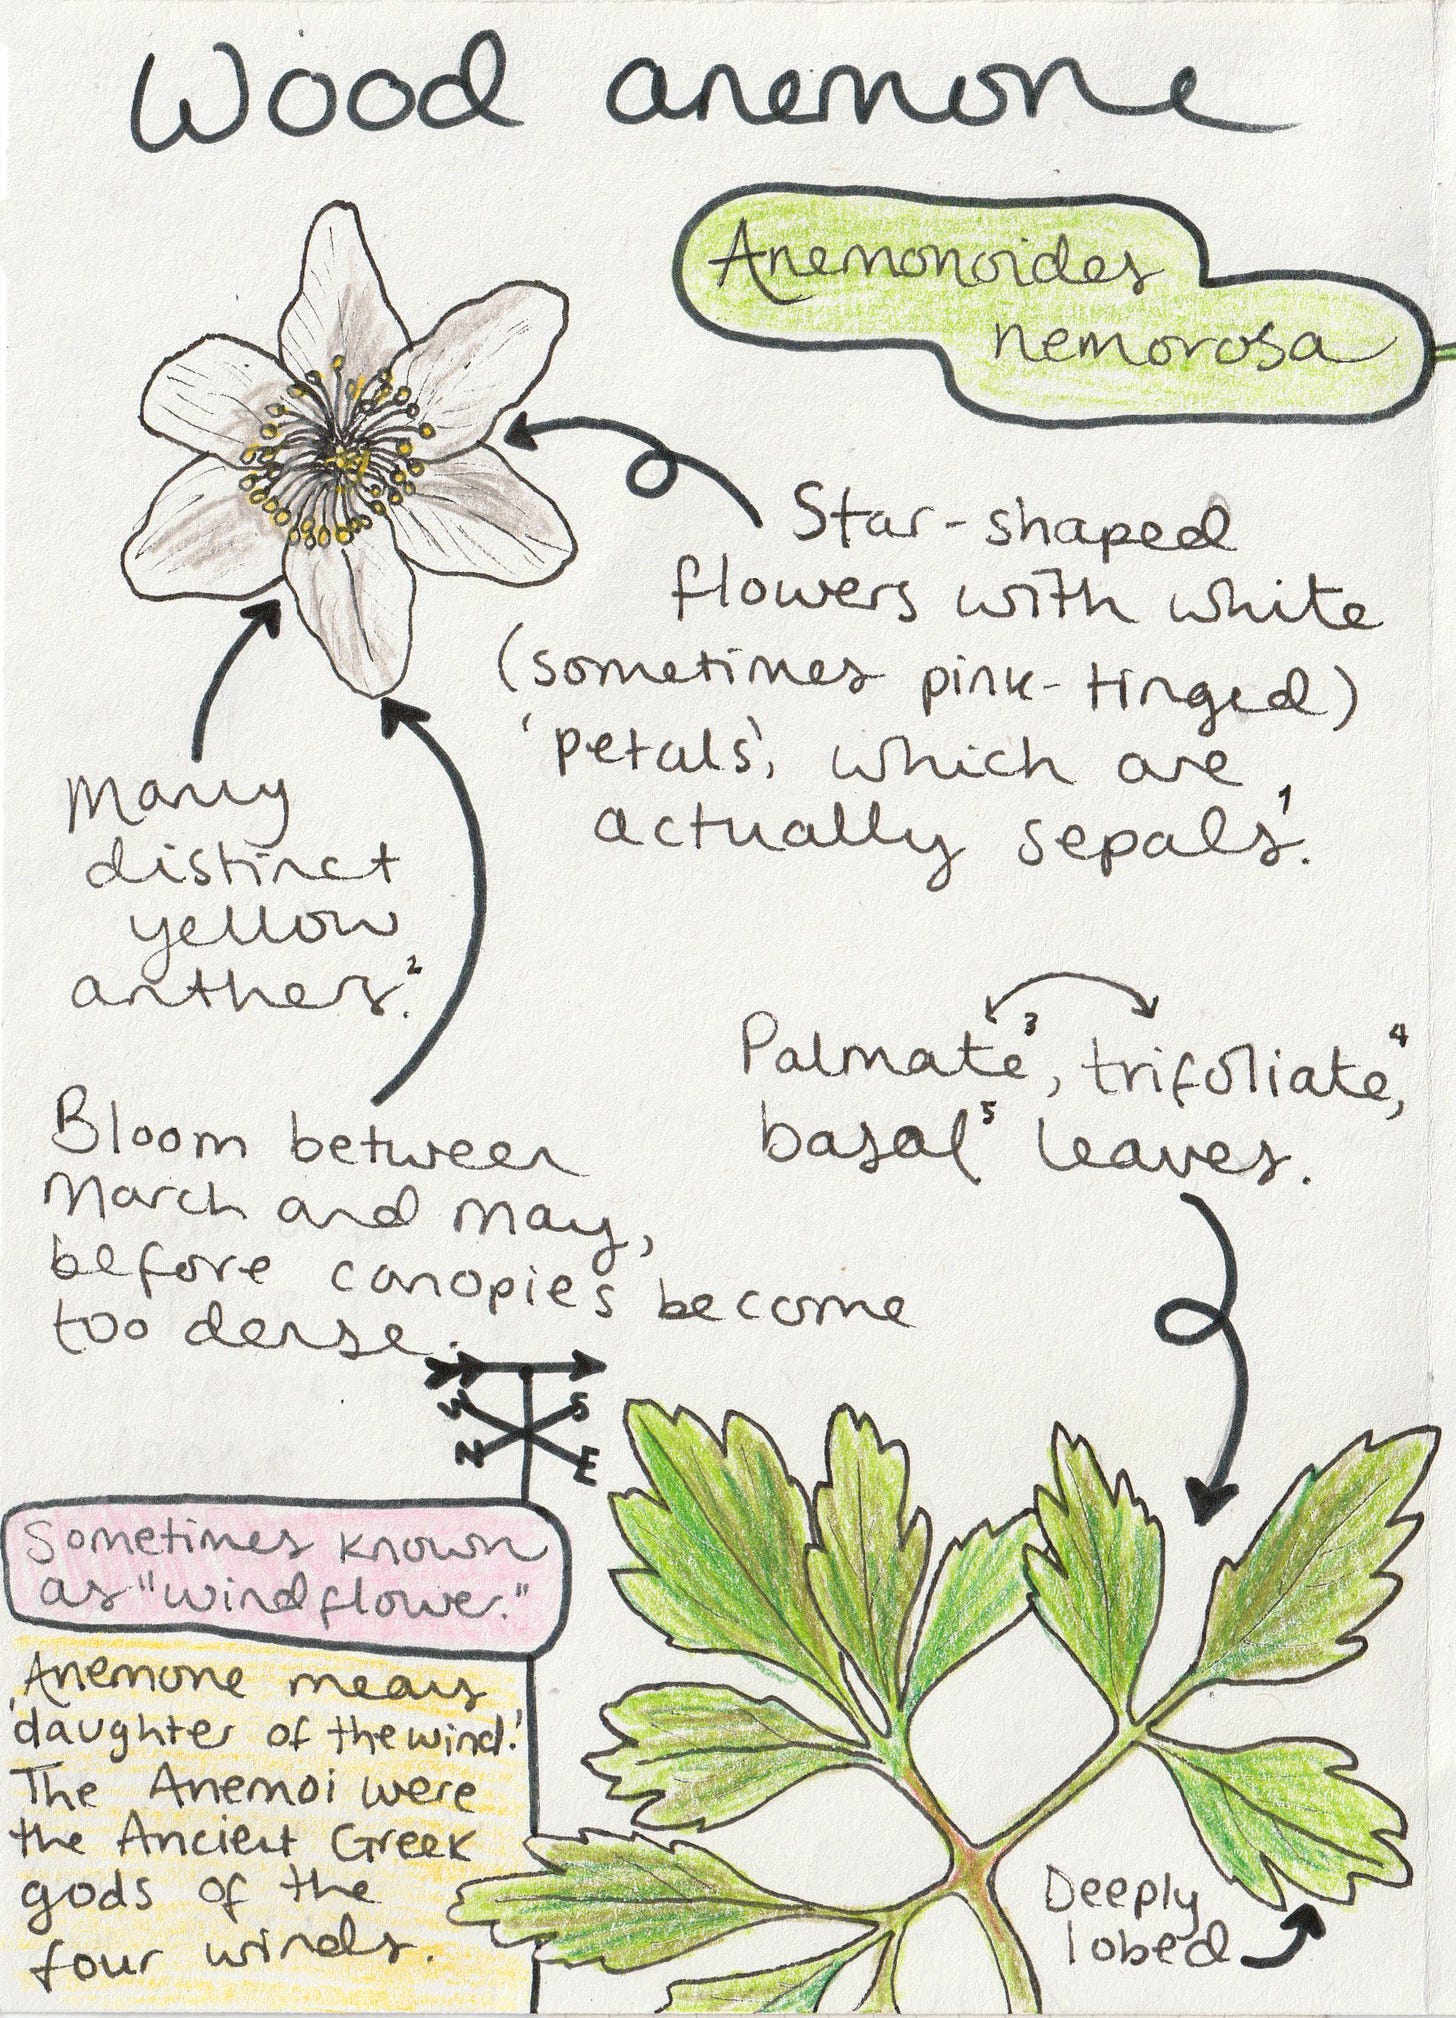 Wood anemone
Anemonoides
nemorosa
Star-shaped
flowers with white
(sometimes pink-tinged)
'petals', which are
actually sepals¹.
Many
distinct
yellow
anthers².
Bloom between
March and May,
before canopies become
too dense.
Palmate³, trifoliate⁴,
basal⁵ leaves.
W S
N E
Sometimes known
as "windflower."
Anemone means
'daughter of the wind.'
The Anemoi were
the Ancient Greek
gods of the
four winds.
Deeply
lobed